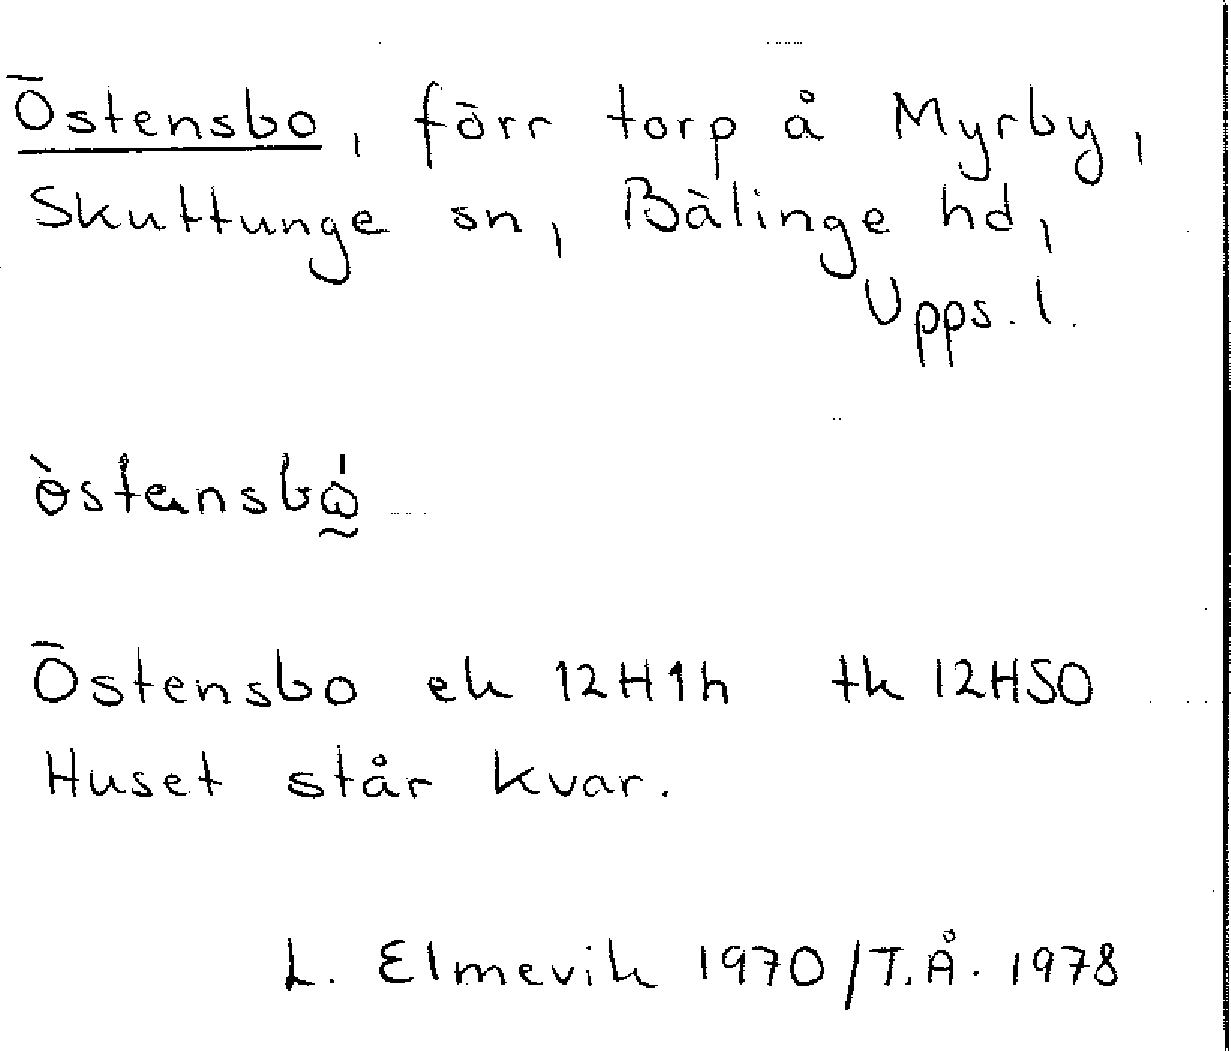 Östensbo, förr torp å Myrby,
Skuttunge sn, Bälinge hd,
Upps. l.
Östensbo ek 12H1h tk 12HSO
Huset står kvar.
L. Elmevik 1970/T.Å. 1978